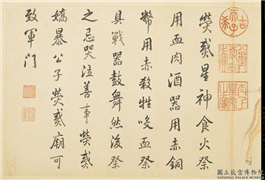 熒惑星神食火祭
用血肉酒器用赤銅
幣用赤牲唊血祭
具戰器鼓舞然後祭
之忌哭泣善事熒惑
嬌暴公子熒惑廟可
致軍門